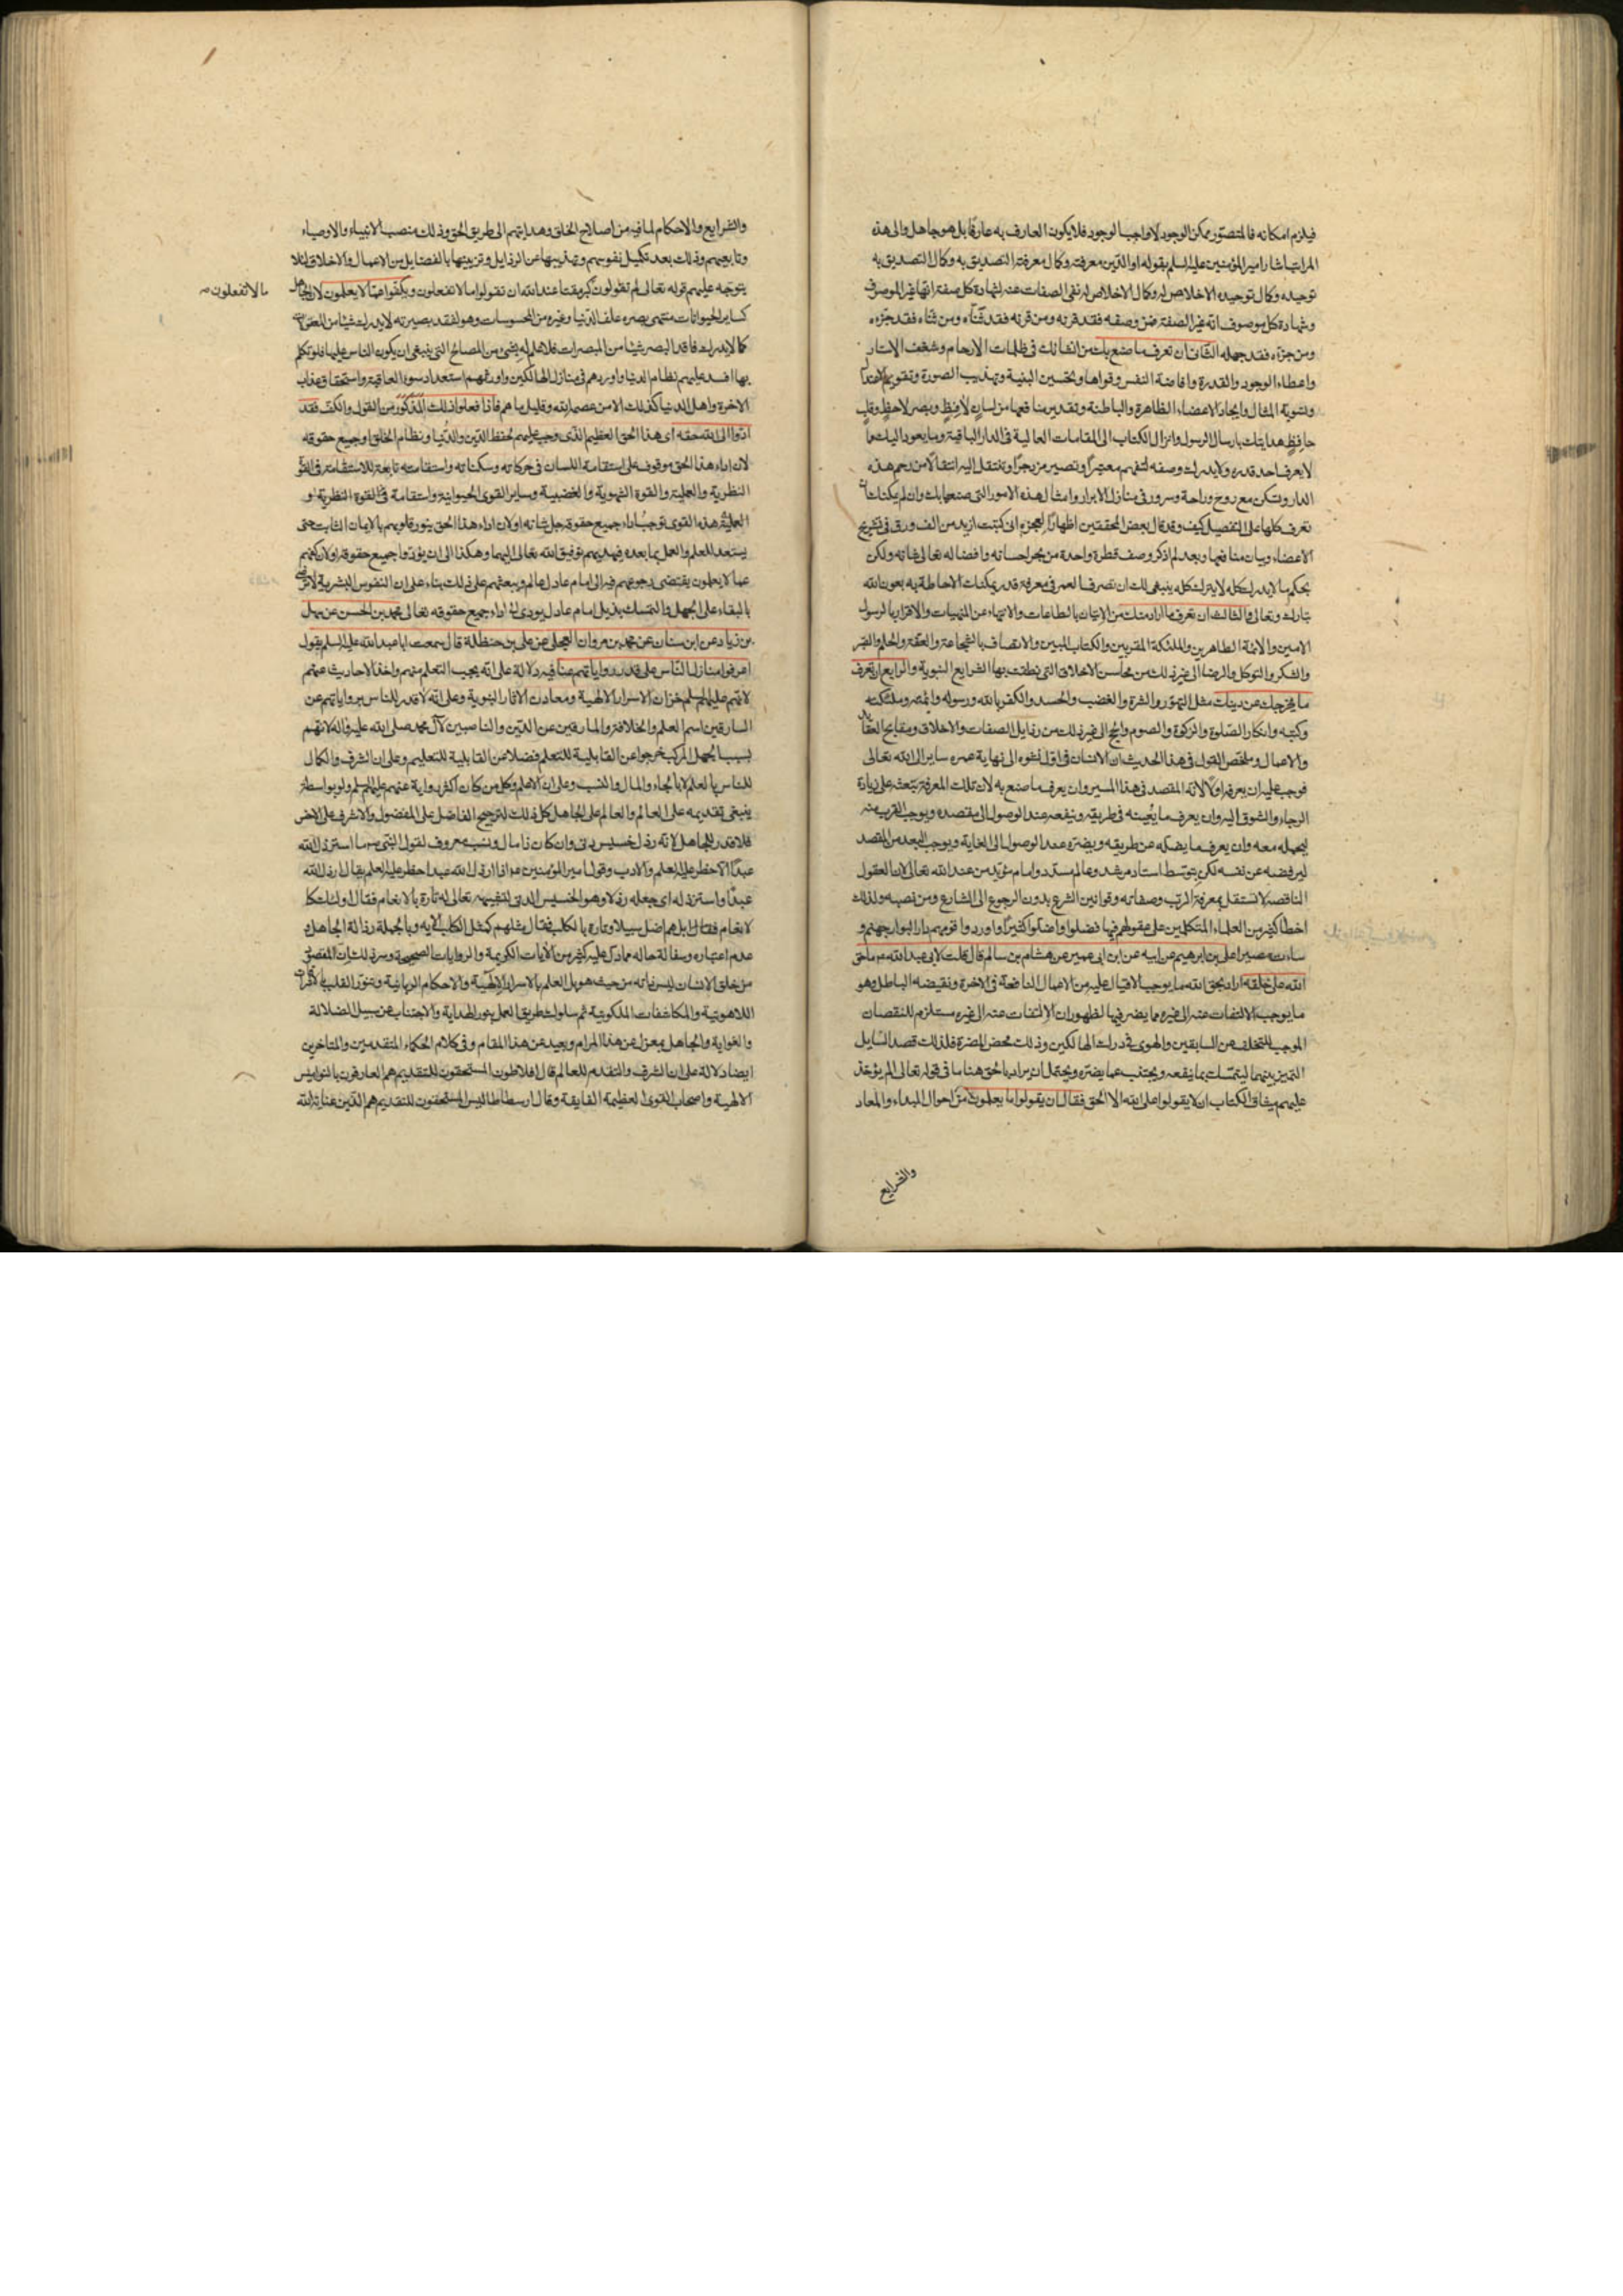 فيلزم امكانه فالمتصور ممكن الوجود لا واجب الوجود فلا يكون العارف به عارفا بل هو جاهل والى هذه
المراتب اشار امير المؤمنين عليه السلم بقوله اول الدين معرفته وكمال معرفته التصديق به وكمال التصديق به
توحيده وكمال توحيده الاخلاص له وكمال الاخلاص له نفى الصفات عنه لشهادة كل صفة انها غير الموصوف
وشهادة كل موصوف انه غير الصفة فمن وصفه فقد قرنه ومن قرنه فقد ثناه ومن ثناه فقد جزءه
ومن جزءه فقد جهله الثانى ان تعرف ما صنع بك من انشائك فى ظلمات الارحام وشغف الاستار
واعطاء الوجود والقدرة وافاضة النفس وقواها وتحسين البنية وتهذيب الصورة وتقويم
وتسوية المثال وايجاد الاعضاء الظاهرة والباطنة وتقدير منافعها من لسان لافظ وبصر لاحظ وقلب
حافظ وهدايتك بارسال الرسول وانزال الكتاب الى المقامات العالية فى الدار الباقية وما يعود اليك مما
لا يعرف احد قدره ولا يدرك وصفه لتفهم معتبرا وتصير مزدجرا وتنتقل اليه انتقالا من رحم هذه
الدار وتكن مع روح وراحة وسرور فى منازل الابرار وامثال هذه الامور التى صنعها بك وان لم يمكنك ان
تعرف كلها على التفصيل كيف وقد قال بعض المحققين اظهارا لعجزه انى كتبت ازيد من الف ورق فى تشريح
الاعضاء وبيان منافعها وبعد لم اذكر وصف قطرة واحدة من بحر احسانه وافضاله تعالى شانه ولكن
بحكم ما لا يدرك كله لا يترك كله ينبغى لك ان تصرف العمر فى معرفة قدر يمكنك الاحاطة به بعون الله
تبارك وتعالى والثالث ان تعرف ما اراد منك من الاتيان بالطاعات والانتهاء عن المنهيات والاقرار بالرسول
الامين والائمة الطاهرين والملئكة المقربين والكتاب المبين والاتصاف بالشجاعة والعفة والحلم والصبر
والشكر والتوكل والرضا الى غير ذلك من محاسن الاخلاق التى نطقت بها الشرايع النبوية والرابع ان تعرف
ما يخرجك عن دينك مثل التهور والشره والغضب والحسد والكفر بالله ورسوله وائمته وملئكته
وكتبه وانكار الصلوة والزكوة والصوم والحج الى غير ذلك من رذايل الصفات والاخلاق ومقابح العقايد
والاعمال وملخص القول فى هذا الحديث ان الانسان فى اول نشوه الى نهاية عمره ساير الى الله تعالى
فوجب عليه ان يعرفه اولا لانه المقصد فى هذا المسير وان يعرف ما صنع به لان تلك المعرفة تبعثه على زيادة
الرجاء والشوق اليه وان يعرف ما يعينه فى طريقه وينفعه عند الوصول الى مقصده ويوجب القرب منه
ليحمله معه وان يعرف ما يضله عن طريقه ويضره عند الوصول الى الغاية ويوجب البعد من المقصد
ليرفضه عن نفسه لكن بتوسط استاد مرشد وعالم مسدد وامام مؤيد من عند الله تعالى لان العقول
الناقصة لا تستقل بمعرفة الرب وصفاته وقوانين الشرع بدون الرجوع الى الشارع ومن نصبه ولذلك
اخطأ كثير من العلماء المتكلمين على عقولهم فيها فضلوا واضلوا كثيرا واوردوا قومهم دار البوار جهنم و
ساءت مصيرا على بن ابرهيم عن ابيه عن ابن ابى عمير عن هشام بن سالم قال قلت لابى عبد الله عه ما حق
الله على خلقه اراد بحق الله ما يوجب الاقبال عليه من الاعمال النافعة فى الاخرة ونقيضه الباطل وهو
ما يوجب الالتفات عنه الى غيره مما يضر فيها لظهور ان الالتفات عنه الى غيره مستلزم للنقصان
الموجب للتخلف عن السابقين والهوى فى درك الهالكين وذلك محض المضرة فلذلك قصد السايل
التميز بينهما ليتمسك بما ينفعه ويجتنب عما يضره ويحتمل ان يراد بالحق هنا ما فى قوله تعالى الم يؤخذ
عليهم ميثاق الكتاب ان لا يقولوا على الله الا الحق فقال ان يقولوا ما يعلمون من احوال المبداء والمعاد
والشرايع
والشرايع والاحكام لما فيه من اصلاح الخلق وهدايتهم الى طريق الحق وذلك منصب الانبياء والاوصياء
وتابعيهم وذلك بعد تكميل نفوسهم وتهذيبها عن الرذايل وتزيينها بالفضايل من الاعمال والاخلاق لئلا
يتوجه عليهم قوله تعالى لم تقولون كبر مقتا عند الله ان تقولوا ما لا تفعلون ويكفوا عما لا يعلمون لان الجاهل
ما لا تفعلون صح
كساير الحيوانات منتهى بصره علف الدنيا وغيره من المحسوسات وهو لفقد بصيرته لا يدرك شيئا من
كما لا يدرك فاقد البصر شيئا من المبصرات فلا علم له بشئ من المصالح التى ينبغى ان يكون الناس عليها فلو تكلم
بها افسد عليهم نظام الدنيا واوردهم فى منازل الهالكين واورثهم استعداد سوء العاقبة واستحقاق عذاب
الاخرة واهل الدنيا كذلك الا من عصمه الله وقليل ما هم فاذا فعلوا ذلك المذكور من القول والكف فقد
ادوا الى الله حقه اى هذا الحق العظيم الذى وجب عليهم لحفظ الدين والدنيا ونظام الخلق او جميع حقوقه
لان اداء هذا الحق موقوف على استقامة اللسان فى حركاته وسكناته واستقامته تابعة للاستقامة فى القوة
النظرية والعملية والقوة الشهوية والغضبية وساير القوى الحيوانية واستقامة القوة النظرية و
العملية هذه القوى توجب اداء جميع حقوقه جل شانه او لان اداء هذا الحق ينور قلوبهم بالايمان الثابت حتى
يستعد للعلم والعمل بما بعده فيهديهم توفيق الله تعالى اليهما وهكذا الى ان يؤدوا جميع حقوقه او لان كفهم
عما لا يعلمون يقتضى رجوعهم فيه الى امام عادل عالم ويبعثهم على ذلك بناء على ان النفوس البشرية لا ترضى
بالبقاء على الجهل والتمسك بذيل امام عادل يؤدى الى اداء جميع حقوقه تعالى محمد بن الحسن عن سهل
بن زياد عن ابن سنان عن محمد بن مروان العجلى عن على بن حنظلة قال سمعت ابا عبد الله عليه السلم يقول
اعرفوا منازل الناس على قدر رواياتهم عنا فيه دلالة على انه يجب التعلم منهم واخذ الاحاديث عنهم
لانهم عليهم السلم خزان الاسرار الالهية ومعادن الاثار النبوية وعلى انه لا قدر للناس بروياتهم عن
السارقين اسم العلم والخلافة والمارقين عن الدين والناصبين لآل محمد صلى الله عليه واله لانهم
بسبب الجهل المركب خرجوا عن القابلية للتعلم فضلا عن القابلية للتعليم وعلى ان الشرف والكمال
للناس بالعلم لا بالجاه والمال والنسب وعلى ان الاعلم وكل من كان اكثر رواية عنهم عليهم السلم ولو بواسطة
ينبغى تقديمه على العالم والعالم على الجاهل كل ذلك لترجيح الفاضل على المفضول والاشرف على الاخس
فلا قدر للجاهل لانه رذل خسيس دنى وان كان ذا مال ونسب معروف لقول النبى ص ما استرذل الله
عبدا الا حظر عليه العلم والادب وقول امير المؤمنين عه اذا ارذل الله عبدا حظر عليه العلم يقال ارذل الله
عبدا واسترذله اى جعله رذلا وهو الخسيس الدنى لتشبيهه تعالى له تارة بالانعام فقال اولئك كا
لانعام فقال بل هم اضل سبيلا وتارة بالكلب فقال مثلهم كمثل الكلب الايه وبالجملة رذالة الجاهل و
عدم اعتباره وسفالة حاله مما دل عليه كثير من الآيات الكريمة والروايات الصحيحة وسر ذلك ان المقصود
من خلق الانسان ليس ذاته من حيث هو بل العلم بالاسرار الالهية والاحكام الربانية وتنور القلب
اللاهوتية والمكاشفات الملكوتية ثم سلوك طريق العمل بنور الهداية والاجتناب عن سبيل الضلالة
والغواية والجاهل بمعزل عن هذا المرام وبعيد عن هذا المقام وفى كلام الحكماء المتقدمين والمتاخرين
ايضا دلالة على ان الشرف والتقدم للعالم قال افلاطون المستحقون للتقديم هم العارفون بالنواميس
الالهية واصحاب القوى العظيمة الفايقة وقال ارسطاطاليس المستحقون للتقديم هم الذين عناية الله